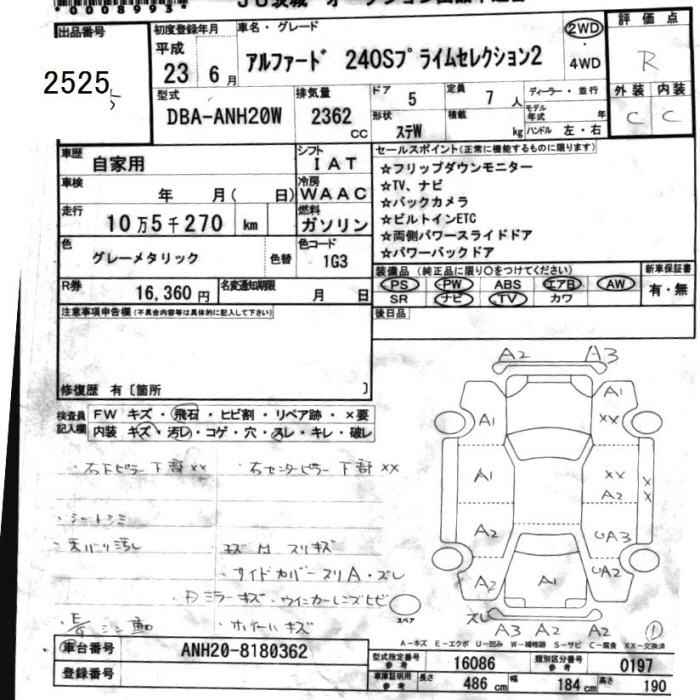 00089938
出品番号
2525
5
初度登録年月
平成
23 6月
車名・グレード
アルファード 240Sプライムセレクション2
2WD
・
4WD
評価点
R
外装 内装
C C
型式
DBA-ANH20W
排気量
2362
CC
ドア 5
定員 7人
形状 ステW
積載 kg
ディーラー・並行
モデル年式 年
ハンドル 左・右
車歴
自家用
シフト
IAT
車検
年 月( 日)
冷房
WAAC
走行
10万5千270 km
燃料
ガソリン
色
グレーメタリック
色替
色コード
1G3
R券
16,360円
名変通知期限
月 日
セールスポイント(正常に機能するものに限ります)
☆フリップダウンモニター
☆TV、ナビ
☆バックカメラ
☆ビルトインETC
☆両側パワースライドドア
☆パワーバックドア
装備品(純正品に限り○をつけてください)
PS PW ABS エアB AW
SR ナビ TV カワ
新車保証書
有・無
後日品
注意事項申告欄(不具合内容等は具体的に記入して下さい)
修復歴 有〔箇所 〕
検査員
記入欄
FW キズ・飛石・ヒビ割・リペア跡・×要
内装 キズ・汚レ・コゲ・穴・スレ・キレ・破レ
・右Fピラー下部××
・右センターピラー下部××
・シートシミ
・天バリ汚レ
・サイドカバースリA・ズレ
ミラーキズ・ウインカーレンズヒビ
・ホイールキズ
A2 A3
A1 A1
××
A1 ××
A2
××
A2 UA3
A2 A1 UA2
スペア
ズレ
A3 A2 A2
1
A-キズ E-エクボ U-凹み W-補修跡 S-サビ C-腐食 XX-交換済
車台番号
ANH20-8180362
登録番号
型式指定番号
参考
16086
類別区分番号
参考
0197
車庫証明用
参考
長さ 486cm 幅 184cm 高さ 190